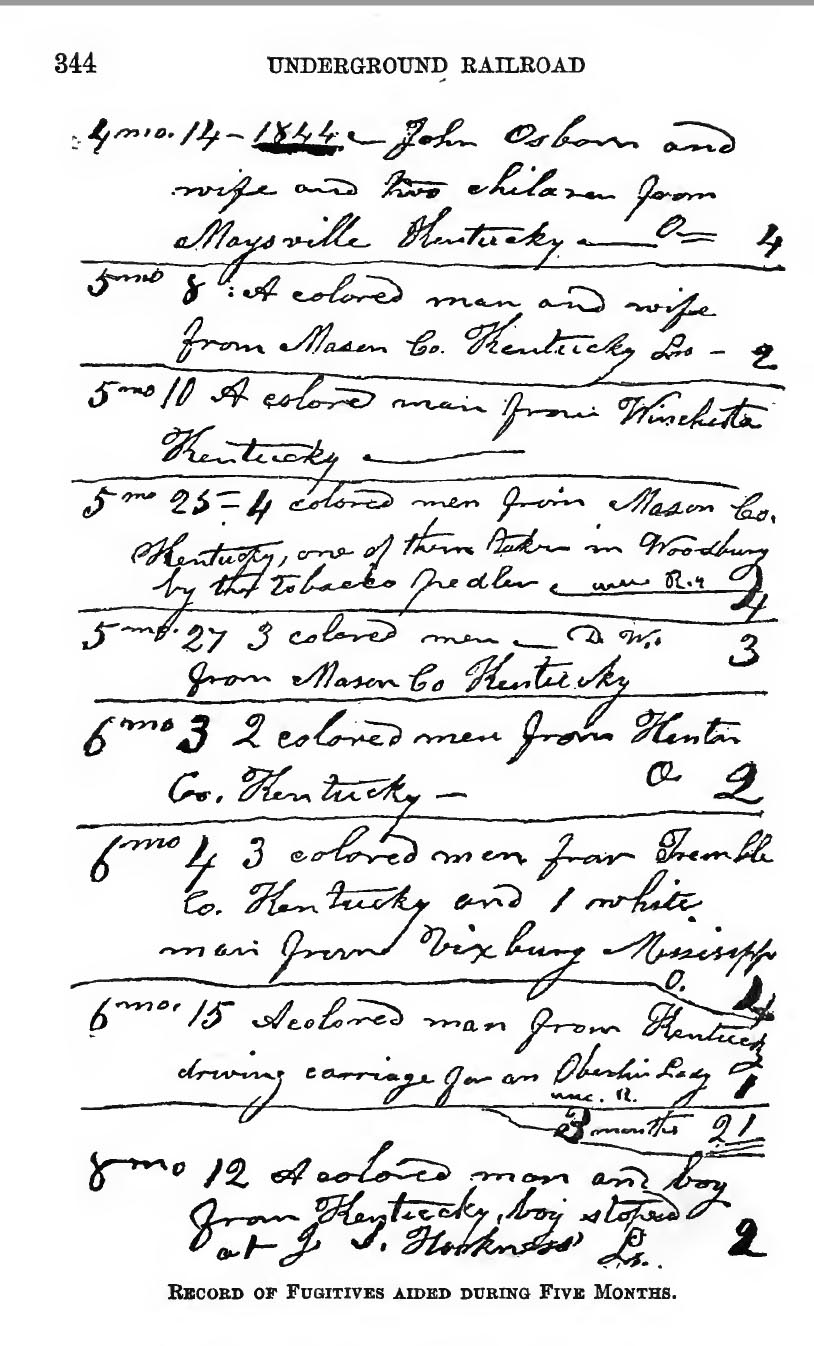 344 UNDERGROUND RAILROAD
4 mo. 14 - 1844 — John Osborn and
wife and two children from
Maysville Kentucky — O = 4
5 mo 8 : A colored man and wife
from Mason Co. Kentucky - 2
5 mo 10 A colored man from Winchester
Kentucky —
5 mo 25 = 4 colored men from Mason Co.
Kentucky, one of them taken in Woodbury
by the tobacco pedler
4
5 mo. 27 3 colored men — D. W. 3
from Mason Co Kentucky
6 mo 3 2 colored men from Kenton
Co. Kentucky — O. 2
6 mo 4 3 colored men from Tremble
Co. Kentucky and 1 white
man from Vixburg Missisippi
O. 4
6 mo. 15 A colored man from Kentucky
driving carriage for an Oberlin Lady 1
3 months 21
8 mo 12 A colored man and boy
from Kentucky, boy stoped
at J. S. Harkness' 2
RECORD OF FUGITIVES AIDED DURING FIVE MONTHS.